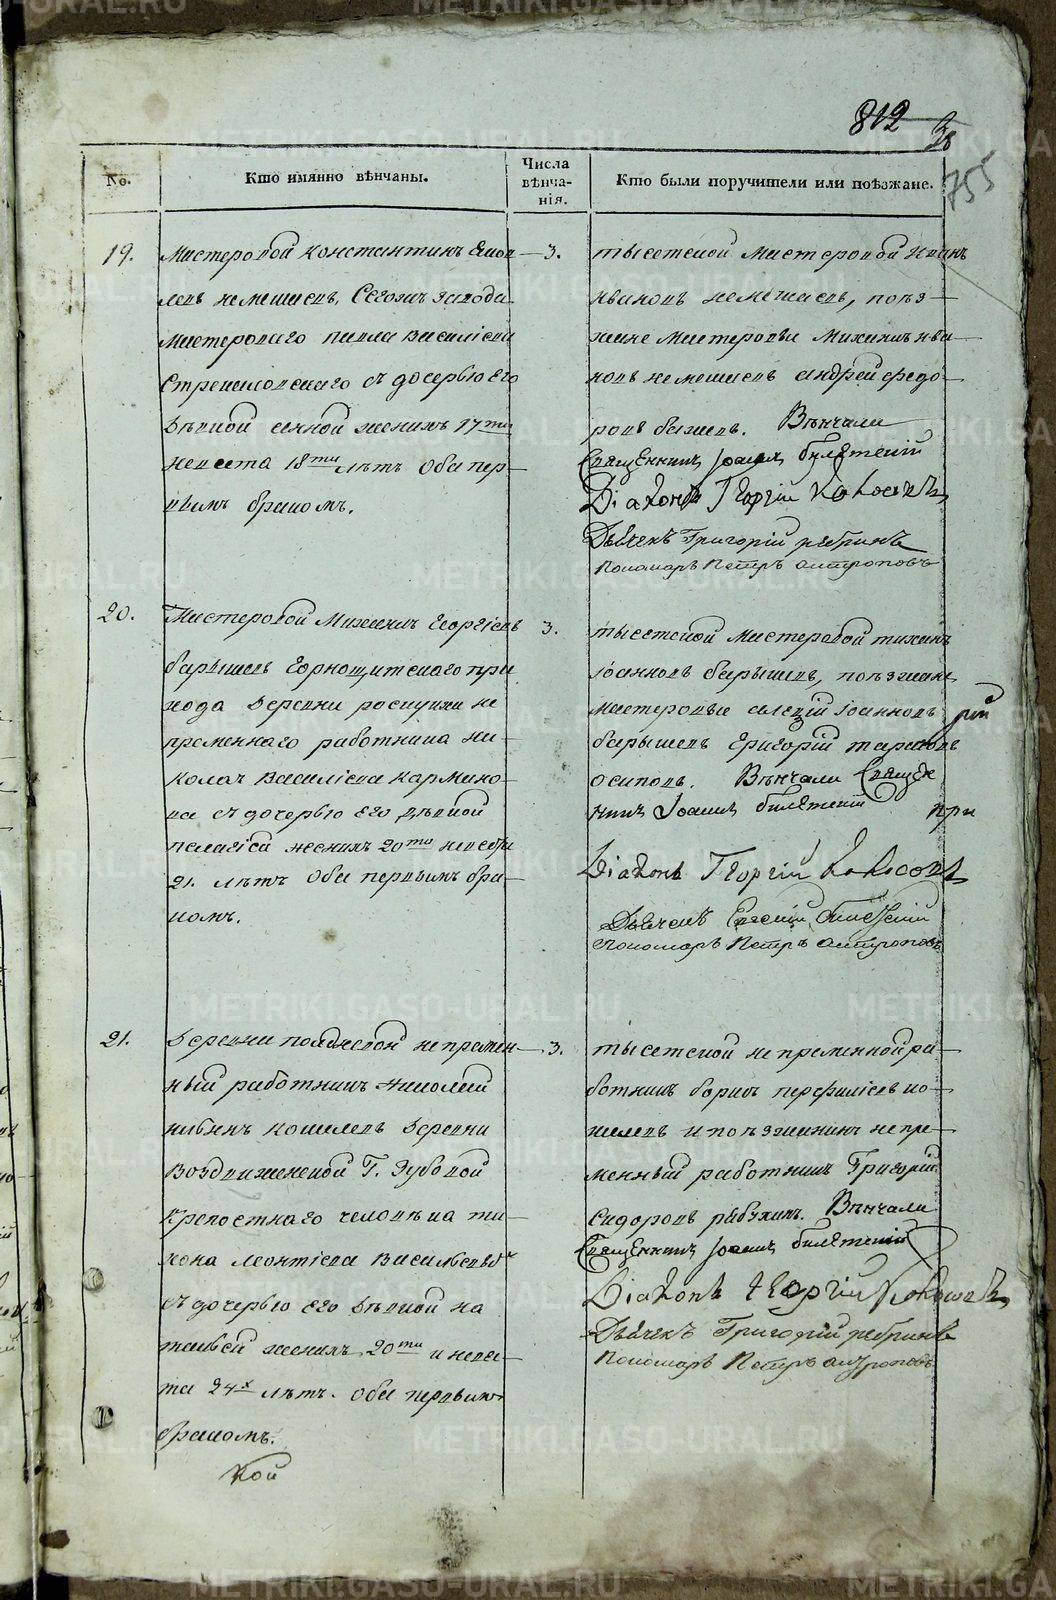 812
38
755
No.
Кто имянно вѣнчаны.
Числа
вѣнча-
нія.
Кто были поручители или поѣзжане.
19.
Мастеровой Константинъ
мастероваго Павла Василіева
съ дочерью его
Дѣвкой Анной женихъ 17ти
невеста 18ти лѣтъ оба пер-
вымъ бракомъ.
3.
тысетской мастеровой Иванъ
Ивановъ поѣз-
жане мастеровые Михаилъ Ива-
новъ Андрей Федо-
ровъ Вѣнчали
Священникъ Іоаннъ
Діаконъ Георгій
Дьячекъ Григорій Ребринъ
Пономарь Петръ Антроповъ
20.
Мастеровой Михаилъ Георгіевъ
барышевъ Горнощитскаго при
хода Деревни не
пременнаго работника Ни-
колая Василіева
ва съ дочерью его дѣвкой
пелагіей женихъ 20ти невеста
21. лѣтъ Оба первымъ бра-
комъ.
3.
тысетской мастеровой тихонъ
Іоанновъ барышевъ, поѣзжане
мастеровые алексій Іоанновъ
барышевъ Григорій
осиповъ. Вѣнчали Священ
никъ Іоаннъ
при
Діаконъ Георгій
Дьячекъ Евгеній
Пономарь Петръ Антроповъ
21.
Деревни непремен-
ный работникъ Николай
кошелевъ Деревни
Воздвиженской Г. Зубовой
Крепостнаго человѣка ти-
хона Леонтіева
съ дочерью его Дѣвкой на
тальей женихъ 20ти и неве-
ста 24х лѣтъ. оба первымъ
бракомъ.
кой
3.
тысетской непременной ра-
ботникъ борисъ перфиліевъ ко-
шелевъ и поѣзжанинъ непре-
менный работникъ Григорій
Сидоровъ Вѣнчали
Священникъ Іоаннъ
Діаконъ Георгій
Дьячекъ Григорій Ребринъ
Пономарь Петръ Антроповъ
METRIKI.GASO-URAL.RU